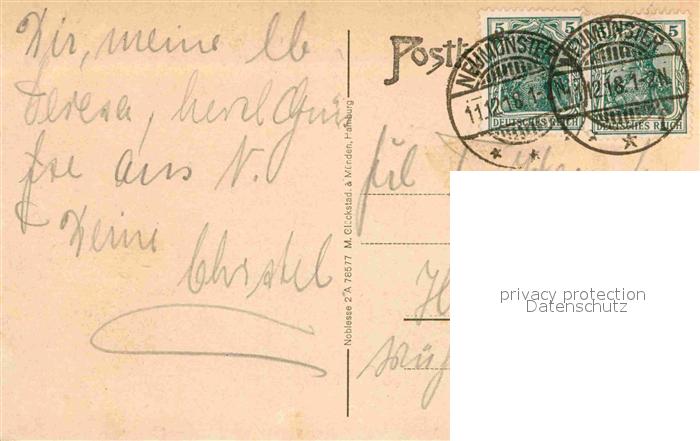 Dir, meine lb
Teresa, herzl Grüs
se aus N.
Deine
Christel
Noblesse 2 A 78577 M. Glückstad. & Münden, Hamburg
Postk
5 5
NEUMÜNSTER
11.12.18.1-2N.
DEUTSCHES REICH
5
NEUMÜNSTER
11.12.18.1-2N.
DEUTSCHES REICH
privacy protection
Datenschutz